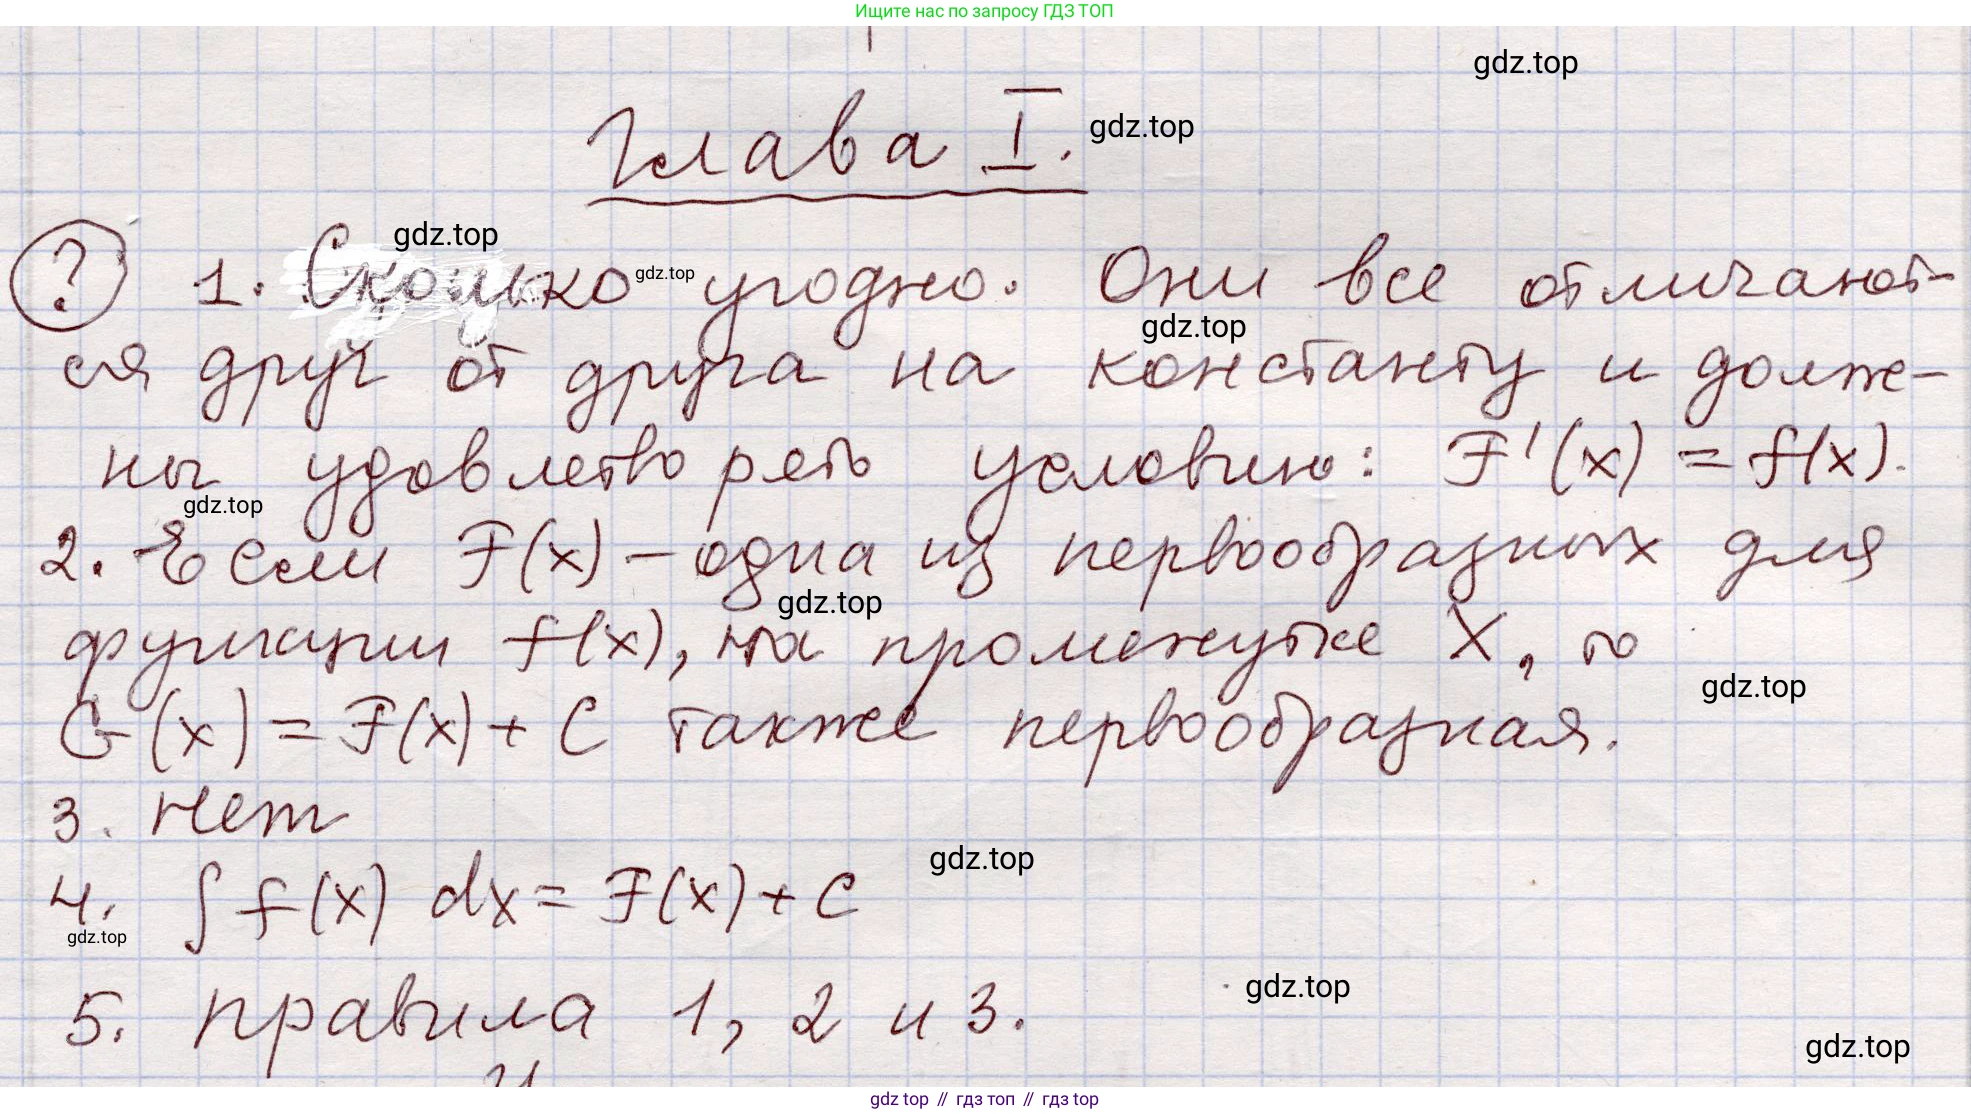 Ищите нас по запросу ГДЗ ТОП
gdz.top
Глава I.
gdz.top
gdz.top
? 1. Сколько угодно. Они все отличают-
gdz.top
gdz.top
ся друг от друга на константу и долж-
ны удовлетворять условию: F'(x) = f(x).
gdz.top
2. Если F(x) – одна из первообразных для
gdz.top
функции f(x), на промежутке X, то
gdz.top
G(x) = F(x) + C также первообразная.
3. Нет
gdz.top
4. ∫ f(x) dx = F(x) + C
gdz.top
gdz.top
5. правила 1, 2 и 3.
gdz.top
gdz top // гдз топ // гдз top